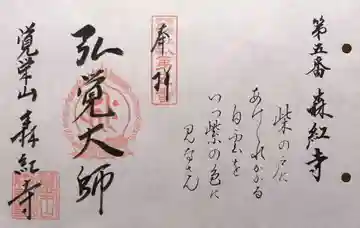 第五番 森紅寺
柴の戸に
あけくれかかる
白雲を
いつ紫の色に
見なさん
奉拝
弘覚大師
覚栄山 森紅寺